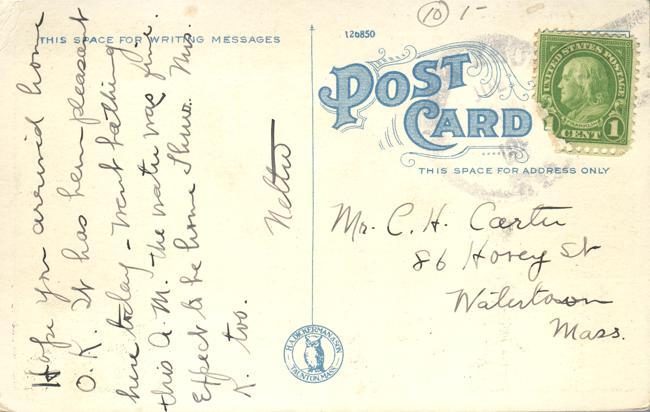 THIS SPACE FOR WRITING MESSAGES
Hope you arrived home
O.K. It has been pleasant
here today - went bathing
this A.M. the water was fine.
Expect to be home Thurs. Mrs.
K. too.
126850
10 1-
POST
CARD
THIS SPACE FOR ADDRESS ONLY
UNITED STATES POSTAGE
FRANKLIN
1 CENT 1
Mr. C. H. Carter
86 Hovey St
Watertown
Mass.
H.A. DICKERMAN & SON
TAUNTON, MASS.